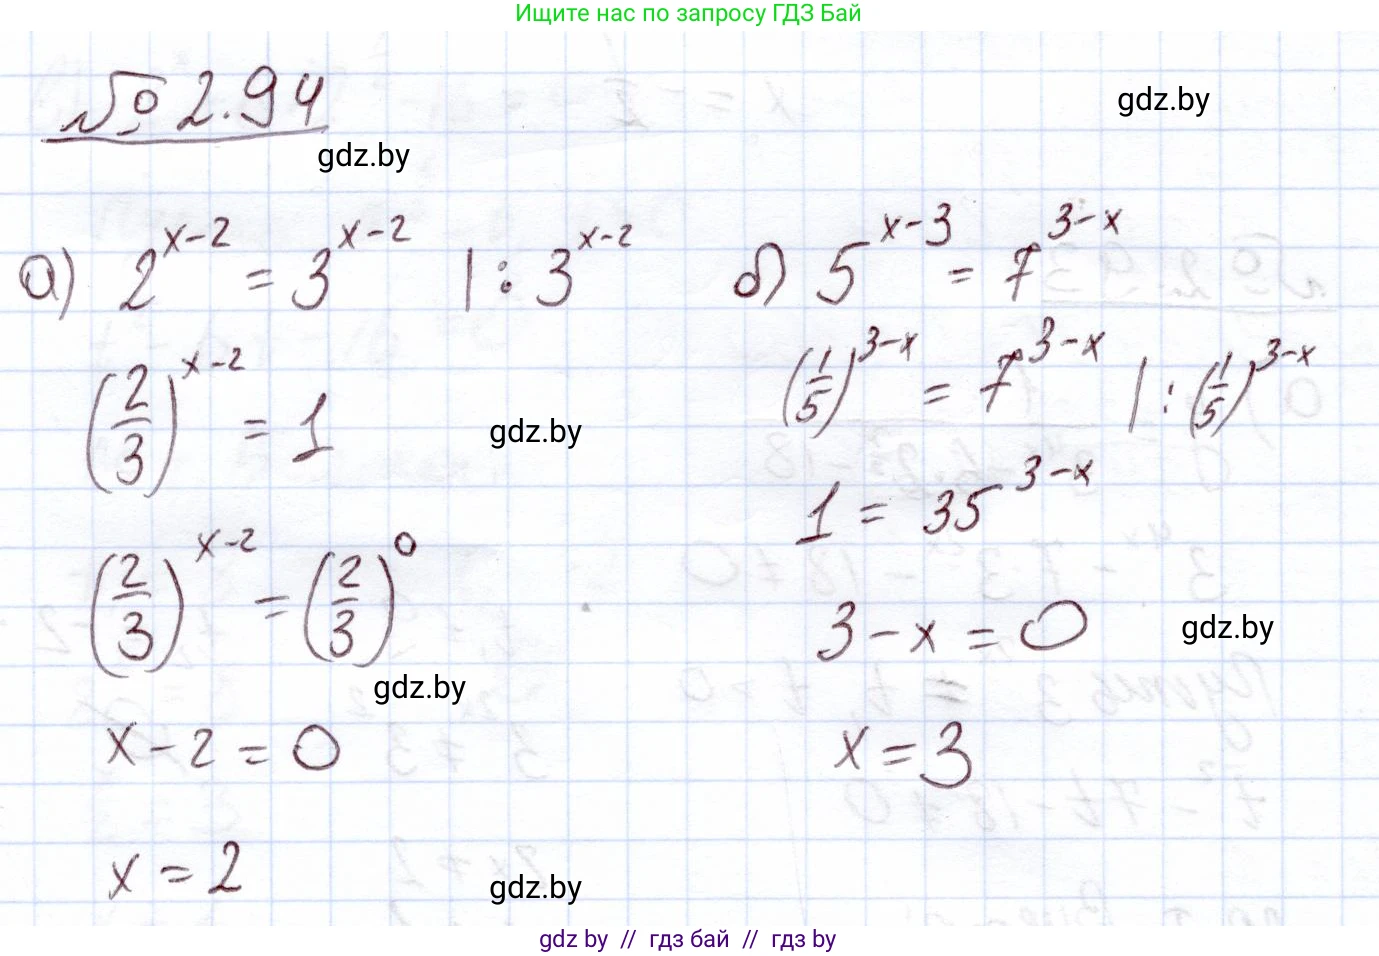 Ищите нас по запросу ГДЗ Бай
№ 2.94
gdz.by
gdz.by
а) 2^{x-2} = 3^{x-2} | : 3^{x-2}
(2/3)^{x-2} = 1
gdz.by
(2/3)^{x-2} = (2/3)^0
gdz.by
x - 2 = 0
x = 2
gdz.by
б) 5^{x-3} = 7^{3-x}
(1/5)^{3-x} = 7^{3-x} | : (1/5)^{3-x}
1 = 35^{3-x}
3 - x = 0
gdz.by
x = 3
gdz by // гдз бай // гдз by